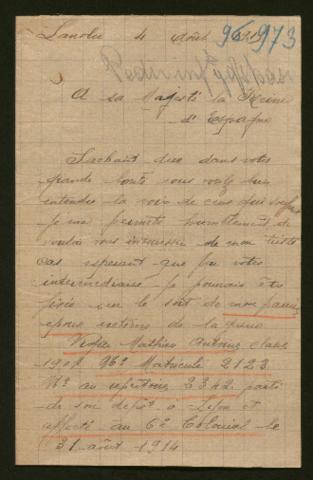 4 Août
96973
Pedir inf
A sa Majesté la Reine
d'Espagne
Sachant que dans votre
grande bonté vous voulez bien
entendre la voix de ceux qui
je me permets humblement de
vouloir vous de mon triste
cas esperant que par votre
intermediaire je pourrais être
fixée sur le sort de mon pauvre
epoux victime de la guerre
Mathieu Antoine Classe
1907 Matricule 2123
Nº au repertoire 2342 parti
de son depôt à Lyon et
affecté au 6e Colonial le
31 août 1914